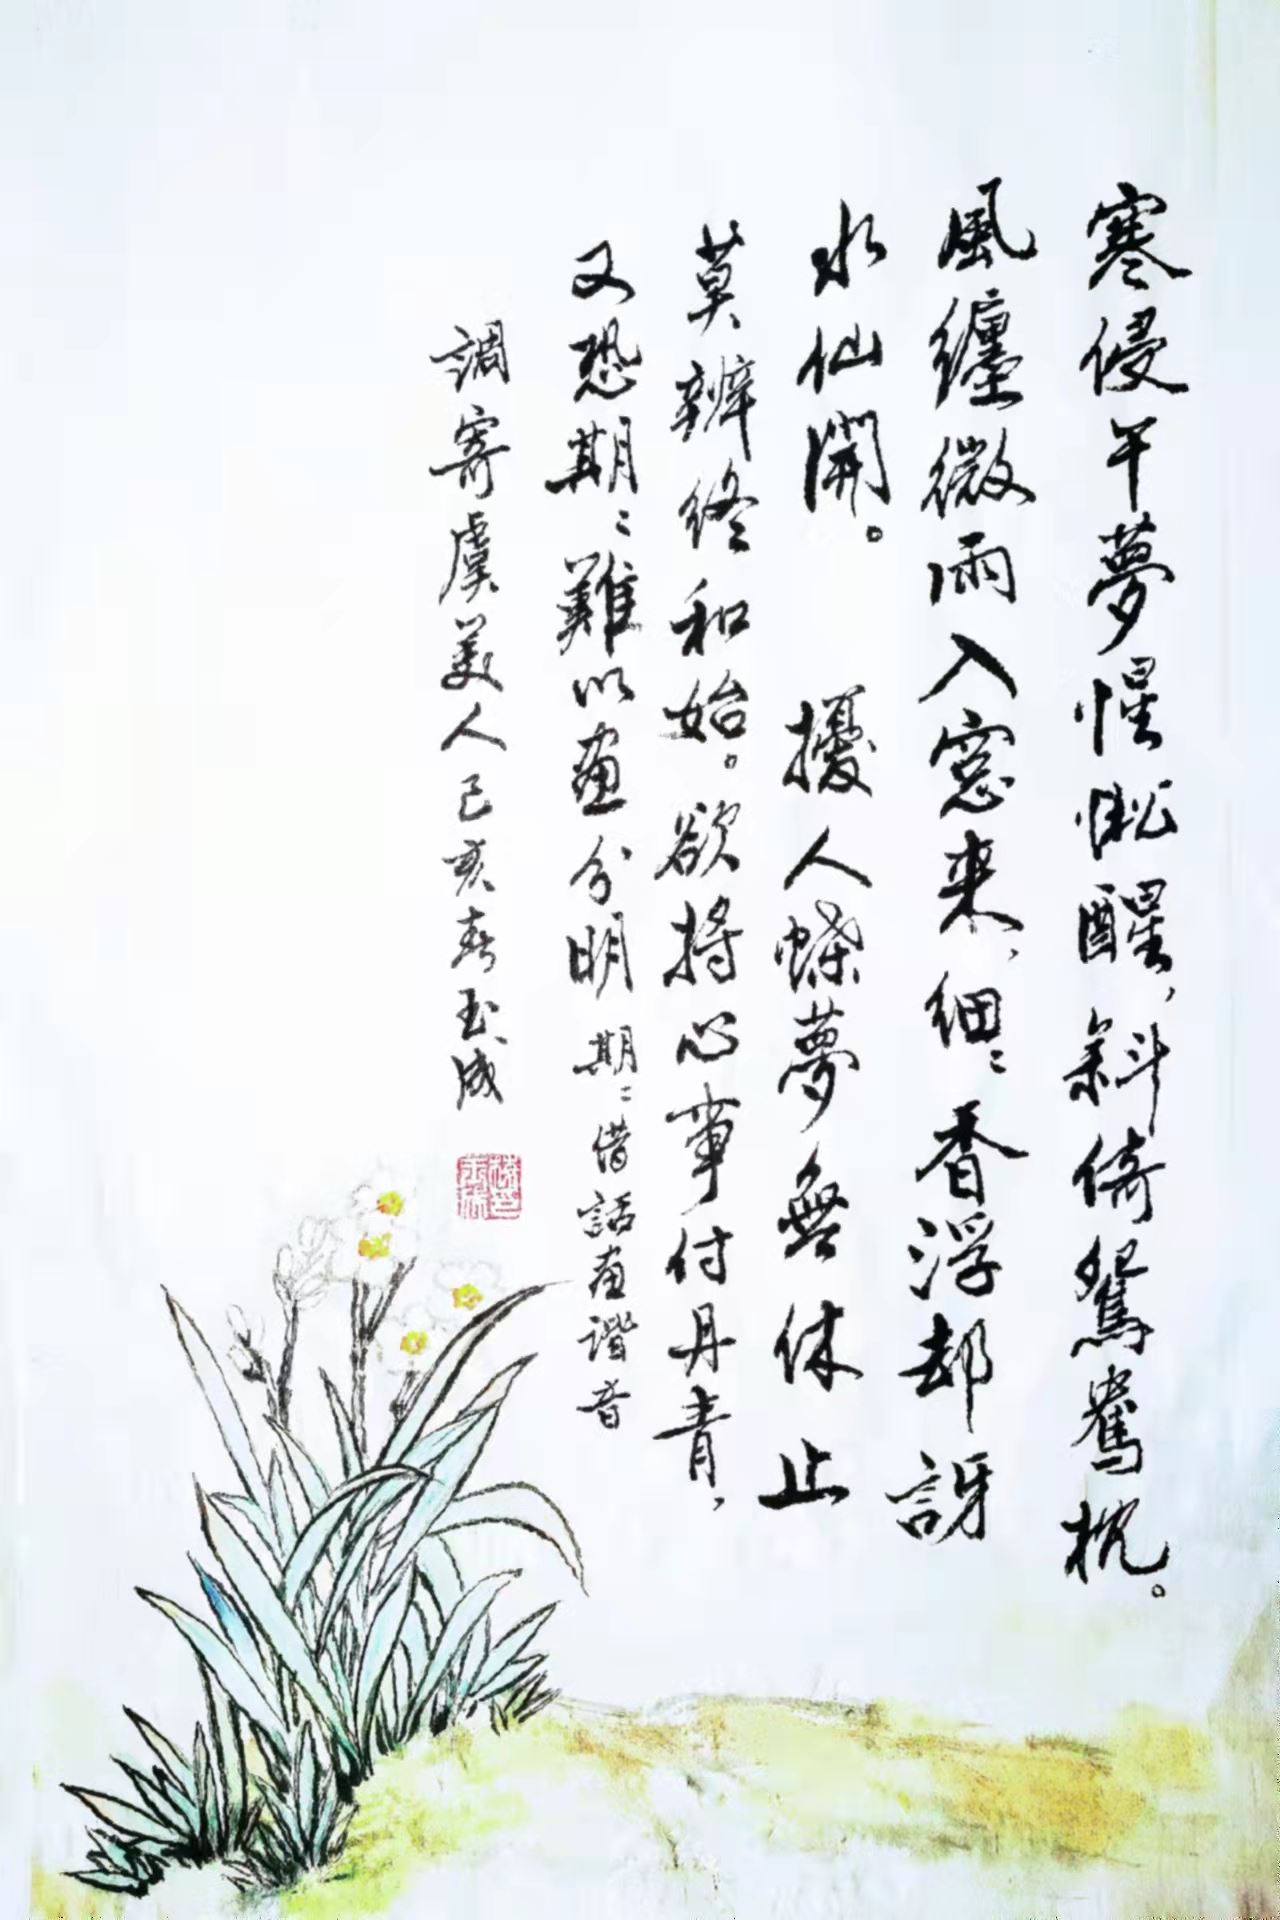 寒侵午夢惺忪醒，斜倚鴛鴦枕。
風纏微雨入窓来，細〻香浮却訝
水仙開。　擾人蝶夢無休止
莫辨終和始。欲将心事付丹青，
又恐期〻難以畫分明 期〻借話畫諧音
調寄虞美人己亥春玉成